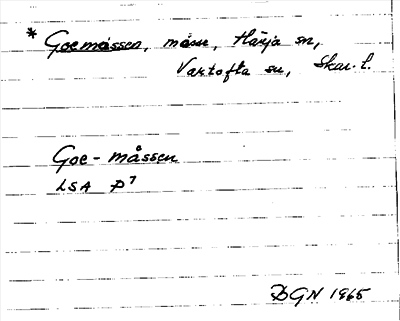 * Goemåssen, mosse, Härja sn,
Vartofta sn, Skar. l.
Goe-måssen
LSA P7
DGN 1965